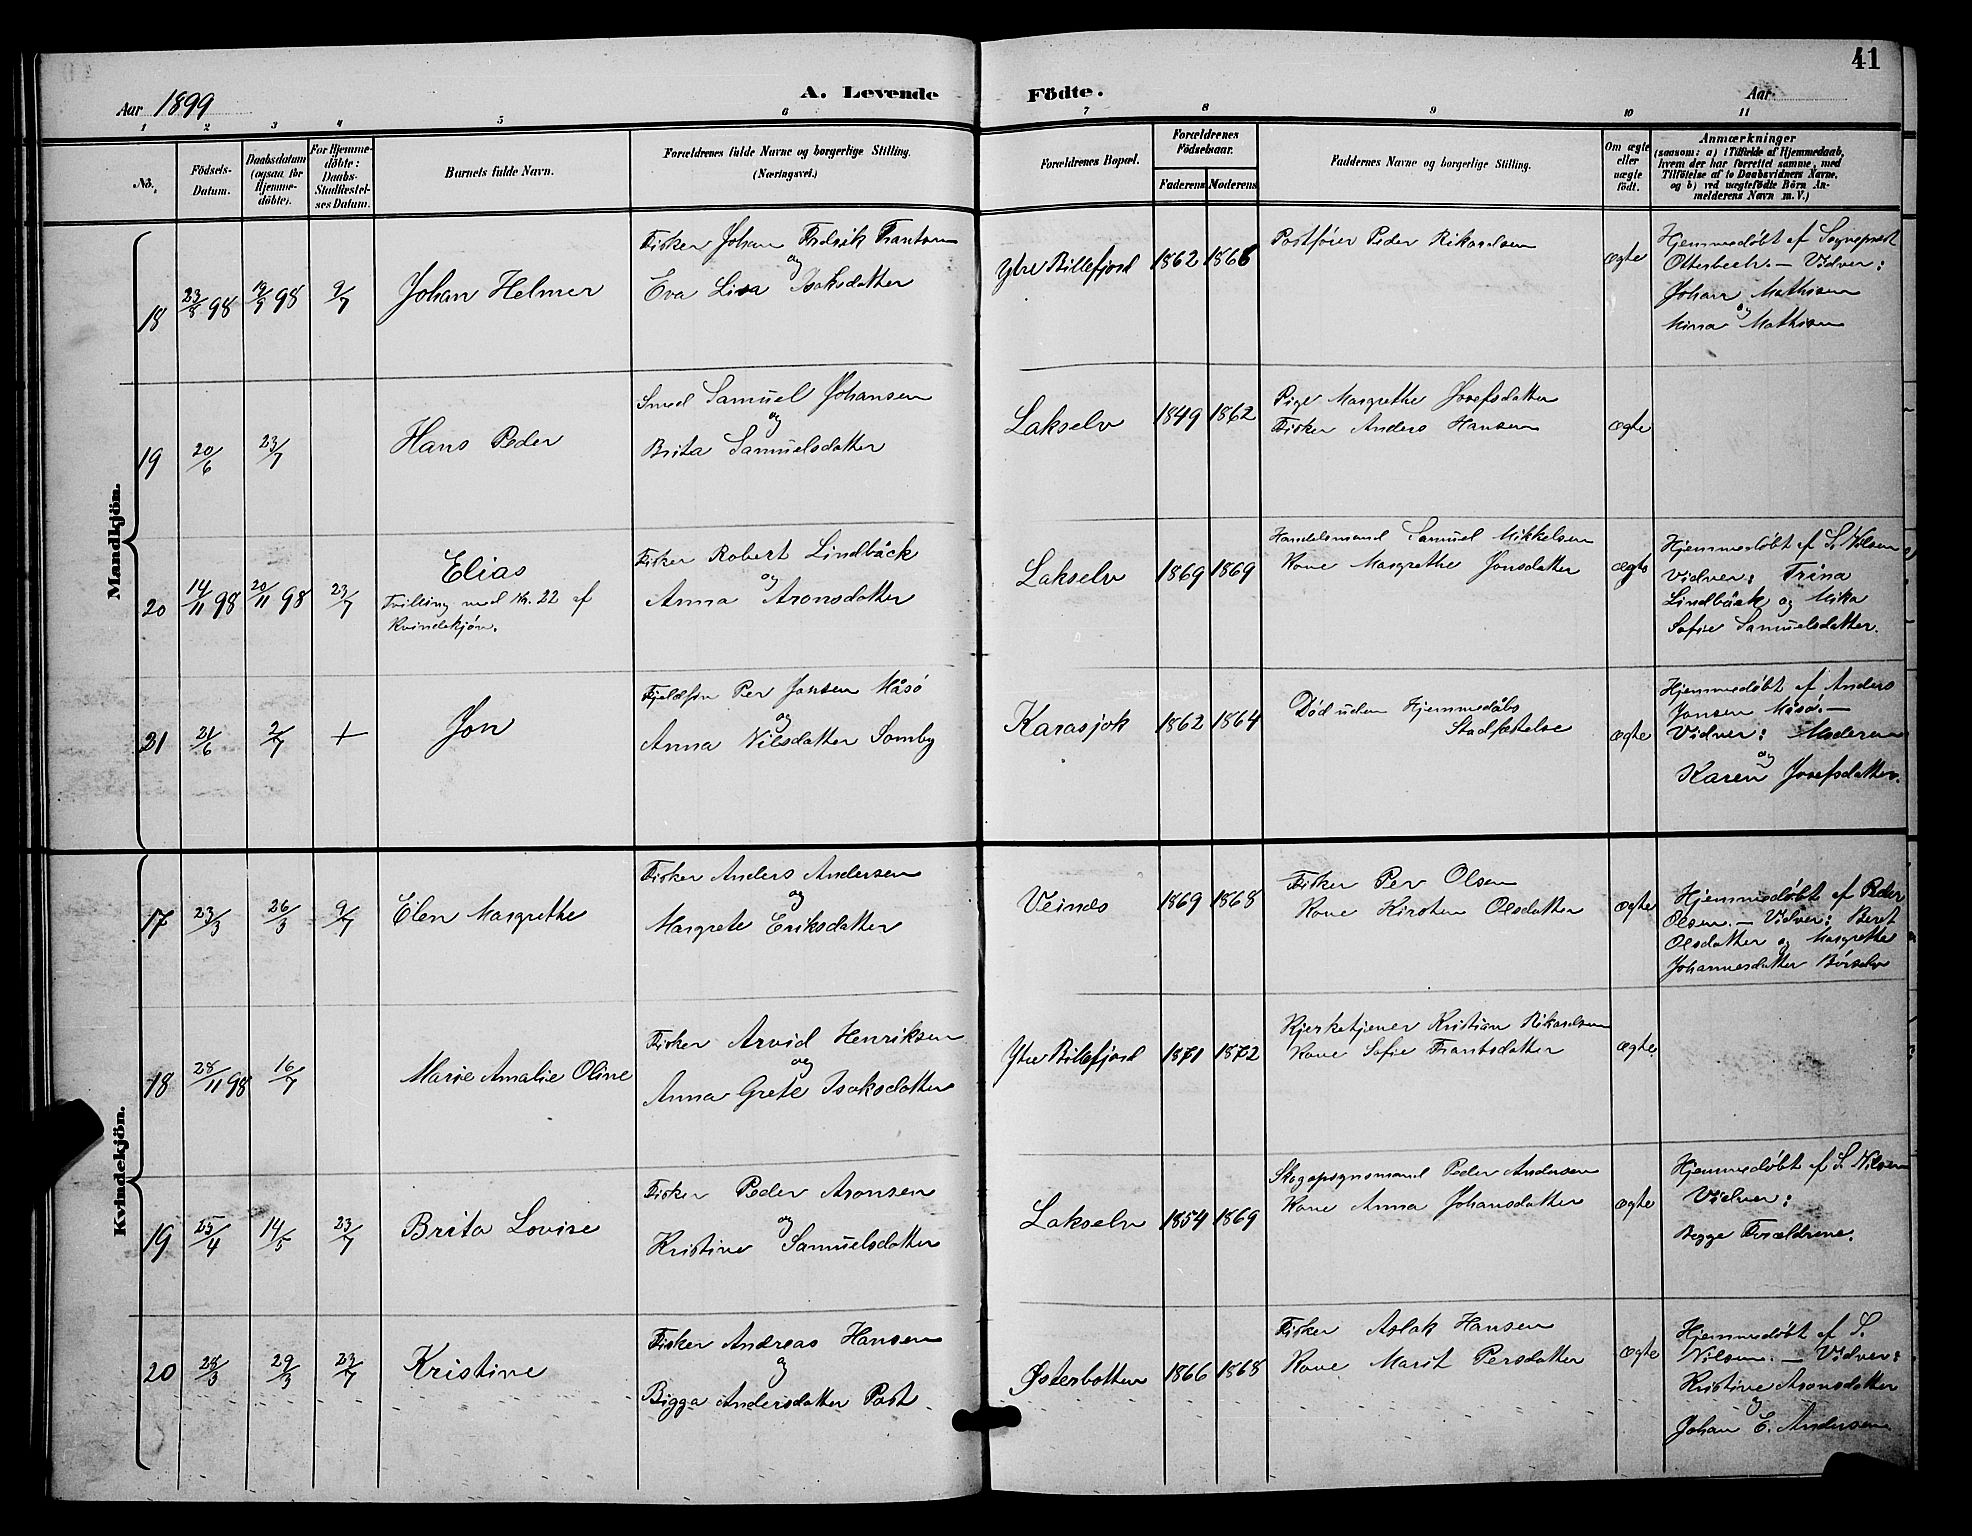 41
Aar 1899 A. Levende Födte. Aar
1 2 3 4 5 6 7 8 9 10 11
No. Födsels-Datum. Daabsdatum (ogsaa for Hjemme-döbte). For Hjemme-döbte: Daabs-Stadfæstel-ses Datum. Barnets fulde Navn. Forældrenes fulde Navne og borgerlige Stilling. (Næringsvei.) Forældrenes Bopæl. Forældrenes Födselsaar. Faderens Moderens Faddernes Navne og borgerlige Stilling. Om ægte eller uægte födt. Anmærkninger
(saasom: a) i Tilfælde af Hjemmedaab,
hvem der har forrettet samme, med
Tilföielse af to Daabsvidners Navne,
og b) ved uægtefödte Börn An-
melderens Navn m. V.)
Mandkjön.
18 23/8 98 98 9/7 Johan Helmer
Fisker Johan Fredrik Frantsen
og
Eva Lisa Isaksdatter
Ytre Billefjord 1862 1866
Postfører Peder Rikardsen
ægte
Hjemmedøbt af Sogneprest
Otterbech. — Vidner:
Johan Mathisen
og
Mina Mathisen
19 20/6 23/7 Hans Peder
Smed Samuel Johansen
og
Brita Samuelsdatter
Lakselv 1849 1862
Pige Margrethe Josefsdatter
Fisker Anders Hansen
ægte
20 14/11 98 20/11 98 23/7 Elias
Tvilling med Nr. 22 af
Kvindekjøn.
Fisker Robert Lindbäck
og
Anna Aronsdatter
Lakselv 1869 1869
Handelsmand Samuel Mikkelsen
Kone Margrethe Jonsdatter
ægte
Hjemmedøbt af S. Nilsen
Vidner: Trina
Lindbäck og Mika
Sofie Samuelsdatter.
21 21/6 2/7 + Jon
Fjeldfin Per Jonsen Måsø
og
Anna Nilsdatter Somby
Karasjok 1862 1864
Død uden Hjemmedåbs
Stadfæstelse
ægte
Hjemmedøbt af Anders
Jonsen Måsø. —
Vidner: Moderen
og
Karen Josefsdatter.
Kvindekjön.
17 23/3 26/3 9/7 Elen Margrethe
Fisker Anders Andersen
og
Margrete Eriksdatter
Veines 1869 1868
Fisker Per Olsen
Kone Kirsten Olsdatter
ægte
Hjemmedøbt af Peder
Olsen. — Vidner: Beret
Olsdatter og Margrethe
Johannesdatter Børselv
18 28/11 98 16/7 Marie Amalie Oline
Fisker Arvid Henriksen
og
Anna Grete Isaksdatter
Ytre Billefjord 1871 1872
Kjerketjener Kristian Rikardsen
Kone Sofie Frantsdatter
ægte
19 25/4 14/5 23/7 Brita Lovise
Fisker Peder Aronsen
og
Kristine Samuelsdatter
Lakselv 1854 1869
Skogopsynsmand Peder Andersen
Kone Anna Johansdatter
ægte
Hjemmedøbt af S. Nilsen
Vidner:
Begge Forældrene.
20 28/3 29/3 23/7 Kristine
Fisker Andreas Hansen
og
Bigga Andersdatter Post
Østerbotten 1866 1868
Fisker Aslak Hansen
Kone Marit Persdatter
ægte
Hjemmedøbt af S.
Nilsen. — Vidner:
Kristine Aronsdatter
og
Johan E. Andersen